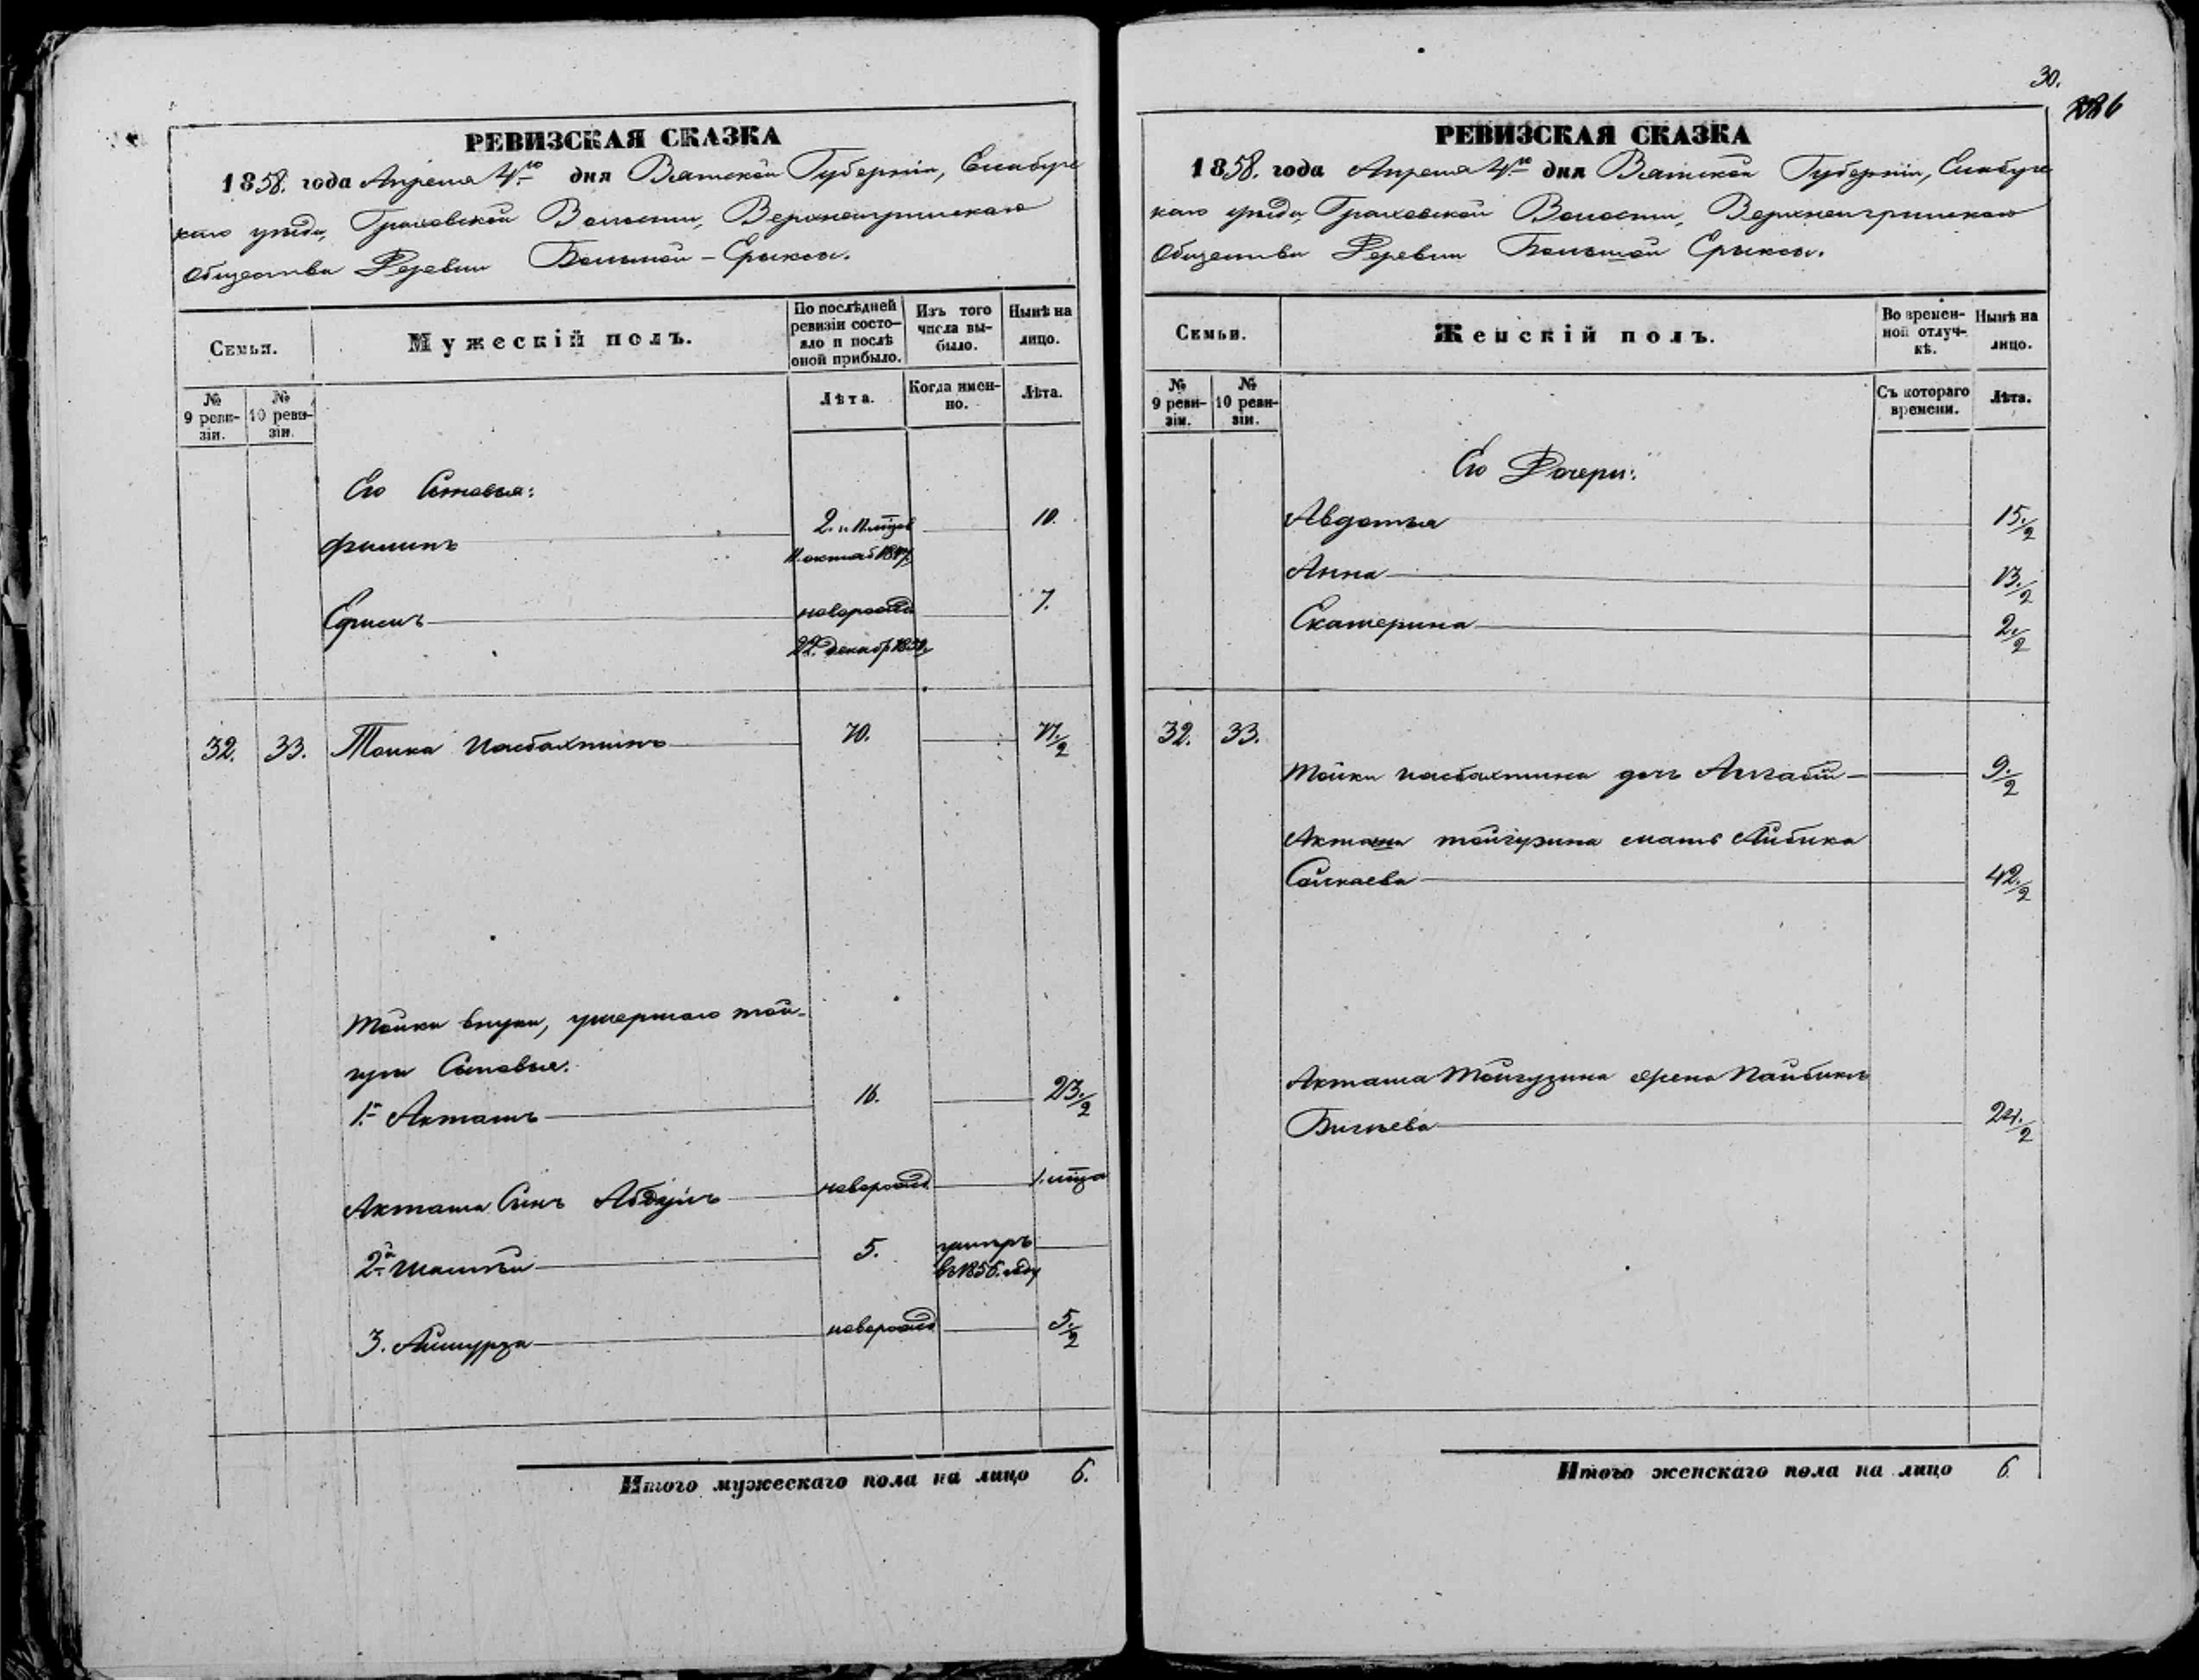 РЕВИЗСКАЯ СКАЗКА
1858. года Апреля 4.го дня Вятской Губернiи, Елабуж
скаго уѣзда, Граховской Волости, Верхнеигринскаго
Общества Деревни Большой-Ерыксы.
Семьи.
Мужескiй полъ.
По послѣдней
ревизiи состо-
яло и послѣ
оной прибыло.
Изъ того
числа вы-
было.
Нынѣ на
лицо.
№
9 реви-
зiи.
№
10 реви-
зiи.
Лѣта.
Когда имен-
но.
Лѣта.
Его Сыновья:
Филипъ 10.
11. октяб 1847
Ефимъ новорожд 7.
22. декаб
32. 33. Тойка 70. 71.½
Тойки внуки, умершаго Той-
гузи Сыновья:
1.й Акташъ 16. 23.½
Акташа Сынъ Абдулъ новорожд 1. мца
2.й 5. умеръ
въ 1856. году
3. Аймурза новорожд 5.½
Итого мужескаго пола на лицо 6.
30.
РЕВИЗСКАЯ СКАЗКА
1858. года Апреля 4го дня Вятской Губернiи, Елабуж
скаго уѣзда, Граховской Волости, Верхнеигринскаго
Общества Деревни Большой Ерыксы.
Семьи.
Женскiй полъ.
Во времен-
ной отлуч-
кѣ.
Нынѣ на
лицо.
№
9 реви-
зiи.
№
10 реви-
зiи.
Съ котораго
времени.
Лѣта.
Его Дочери:
Авдотья 15.½
Анна 13.½
Екатерина 2.½
32. 33.
Тойки дочь 9.½
Акташа Тойгузина мать Айбика
42.½
Акташа Тойгузина жена Пайбика
½
Итого женскаго пола на лицо 6